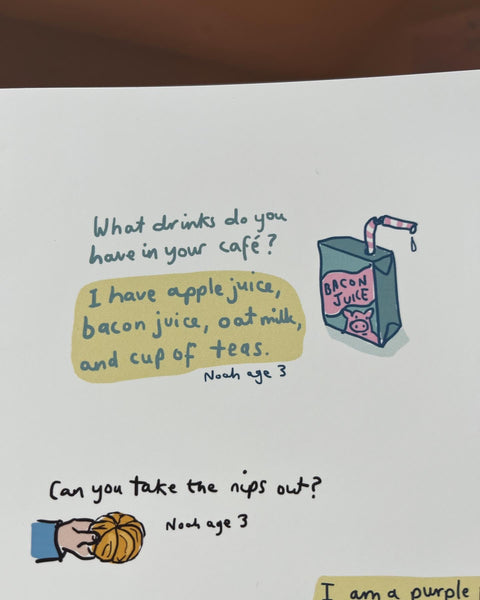 What drinks do you
have in your café?
I have apple juice,
bacon juice, oat milk,
and cup of teas.
Noah age 3
BACON
JUICE
Can you take the nips out?
Noah age 3
I am a purple